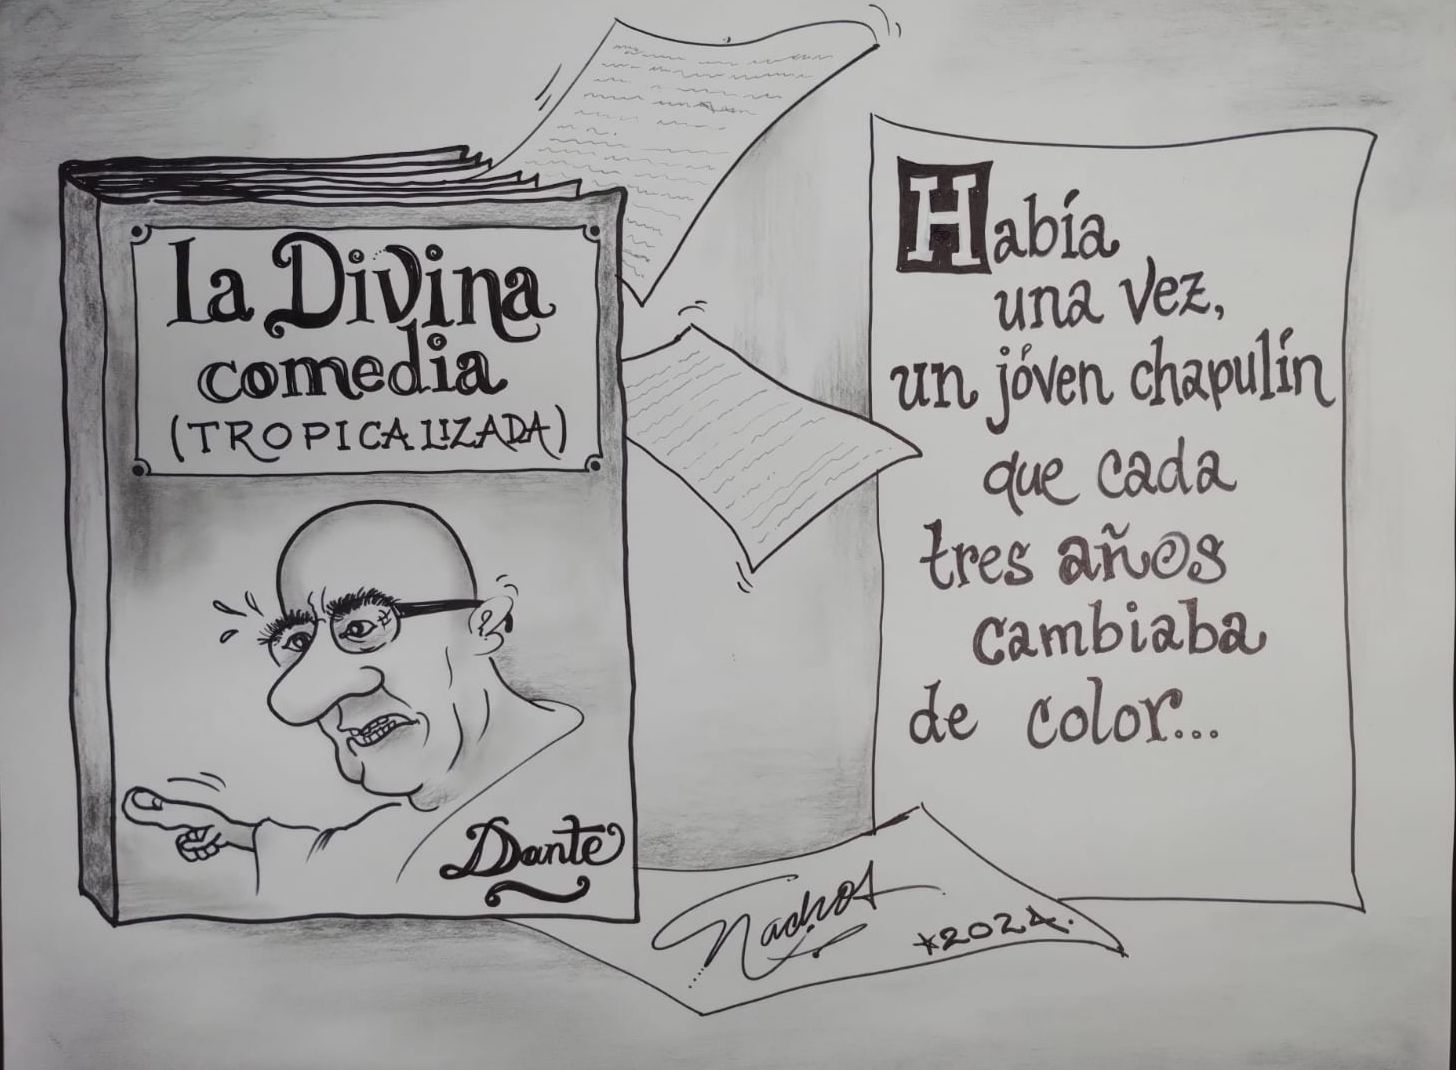 La Divina
comedia
(TROPICALIZADA)
Dante
Había
una vez,
un jóven chapulín
que cada
tres años
cambiaba
de color...
Nachos
*2024.